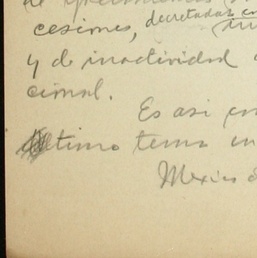 cesiones, decretadas en
y de inactividad
cional.
Es asi
último tema en
Mexico